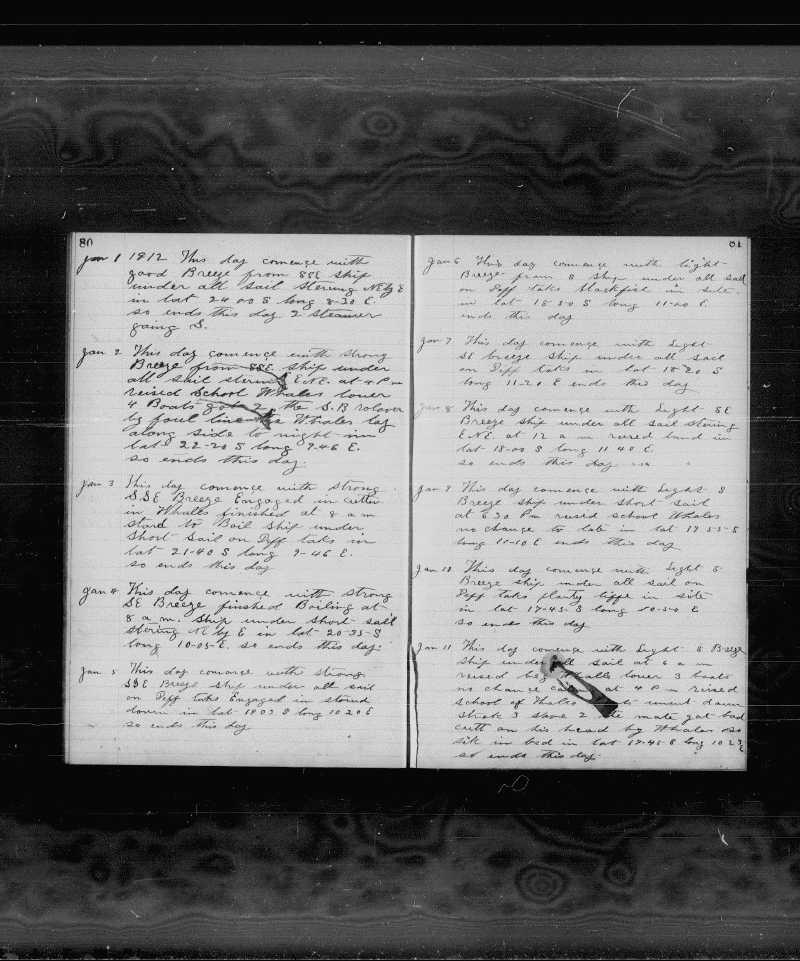 80
Jan 1 1912 This day comence with
good Breeze from SSE Ship
under all sail stering NE by E
in lat 24 00 S long 8-30 E.
so ends this day 2 steamer
going S.
Jan 2 This day comence with strong
Breeze from SSE Ship under
all sail stering E.NE. at 4 Pm
reised School Whales lower
4 Boats got 2 the S.B rolover
by foul line Whales lay
along side to night in
lat 22-20 S long 9-46 E.
so ends this day.
Jan 3 This day comence with strong
S.SE Breeze Engaged in cutten
in Whales finished at 8 a m
stard to Boil Ship under
Short Sail on Diff taks in
lat 21-40 S long 9-46 E.
so ends this day
Jan 4 This day comence with strong
SE Breeze finshed Boiling at
8 a.m. Ship under short sail
stering NE by E in lat 20-35-S
long 10-05-E. so ends this day.
Jan 5 This day comance with strong
SSE Breeze Ship under all sail
on Diff taks Engaged in stowed
down in lat 19 03 S long 10 20 E
so ends this day
81
Jan 6 This day comence with light
Breeze from S Ship under all sail
on Diff taks blackfish in site.
in lat 18-50 S long 11-00 E.
ends this day
Jan 7 This day comence with Light
SE breeze Ship under all sail
on Diff taks in lat 18 20 S
long 11-20 E ends this day
Jan 8 This day comence with Light SE
Breeze Ship under all sail stering
E.NE. at 12 a m reised land in
lat 18-00 S long 11 40 E.
so ends this day
Jan 9 This day comence with Light S
Breeze Ship under short sail
at 6 30 Pm reised school Whales
no change to late in lat 17 55-S
long 11-10 E ends this day
Jan 10 This day comence with Light S
Breeze Ship under all sail on
Diff taks planty in site
in lat 17-45 S long 10-50 E
so ends this day
Jan 11 This day comence with Light S Breeze
Ship under all sail at 6 a m
reised beg Whalls lower 3 boats
no change at 4 P m reised
school of Whales went down
strok 3 save 2 the mate got bad
cutt on his head by Whales so
sik in bed in lat 17-45-S long 10 23 E
so ends this day.